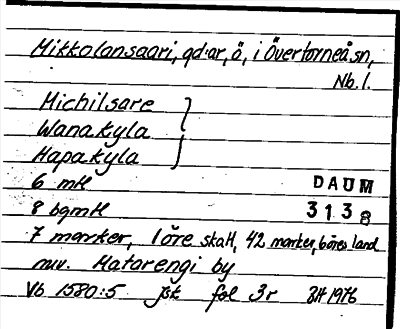 Mikkolansaari, gd:ar, ö, i Övertorneå sn,
Nb. l.
Michilsare
Wanakyla
Hapakyla
6 mtl
8 bgmtl
DAUM
3138
7 marker, 1 öre skatt, 42 marker, böres land
nuv. Matarengi by
Vb 1580:5 jbk fol 3r 1976